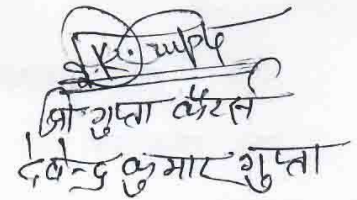 D.K. Gupta
श्री गुप्ता कैटर्स
देवेन्द्र कुमार गुप्ता